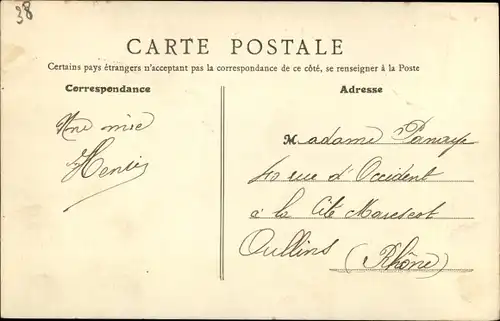 38
CARTE POSTALE
Certains pays étrangers n'acceptant pas la correspondance de ce côté, se renseigner à la Poste
Correspondance
Adresse
Une mie
Henri
Madame
40 rue d'Occident
à la Cité Marescot
Oullins
(Rhône)